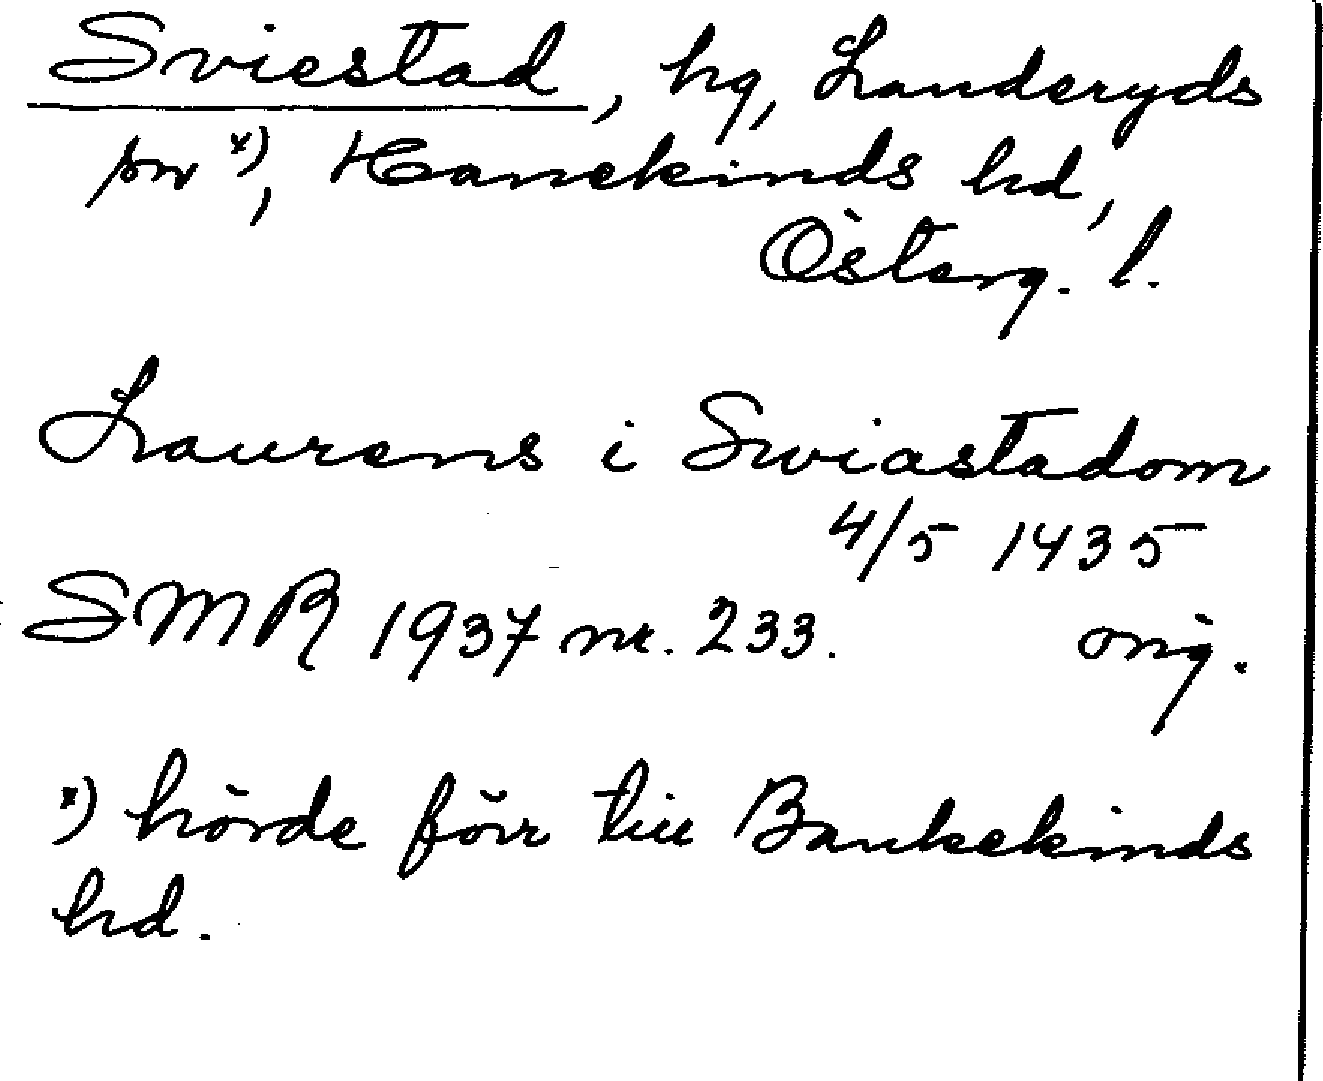 Sviestad, hg, Landeryds
sn x), Hanekinds hd,
Österg. l.
Laurens i Swiastadom
4/5 1435
SMR 1937 nr. 233. orig.
x) hörde förr till Bankekinds
hd.